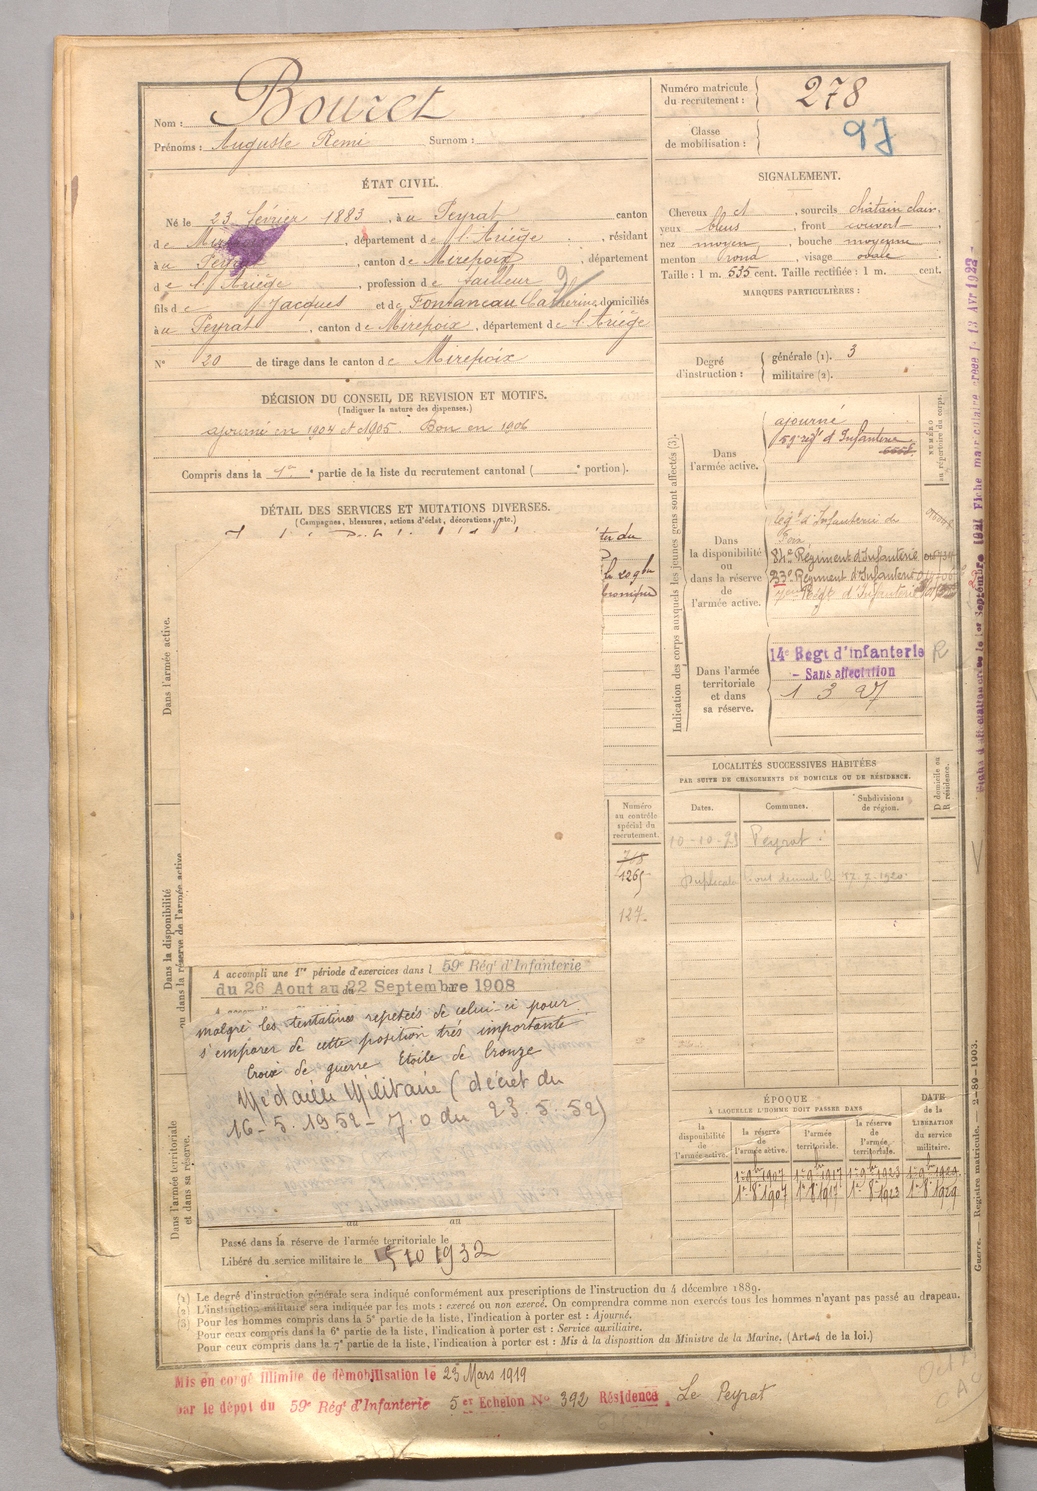 Nom : Bouret
Prénoms : Auguste Remi Surnom :
Numéro matricule du recrutement : 278
Classe de mobilisation : 97
ÉTAT CIVIL.
Né le 23 février 1883, à u Peyrat canton
de , département de l'Ariège, résidant
à u , canton de Mirepoix, département
de l'Ariège, profession de tailleur
fils de Jacques et de Fontaneau Catherine, domiciliés
à u Peyrat, canton de Mirepoix, département de l'Ariège
N° 20 de tirage dans le canton de Mirepoix
SIGNALEMENT.
Cheveux et, sourcils châtain clair,
yeux bleus, front couvert,
nez moyen, bouche moyenne
menton rond, visage ovale
Taille : 1 m. 535 cent. Taille rectifiée : 1 m. cent.
MARQUES PARTICULIÈRES :
Degré d'instruction : générale (1). 3
militaire (2).
DÉCISION DU CONSEIL DE REVISION ET MOTIFS.
(Indiquer la nature des dispenses.)
ajourné en 1904 et 1905. Bon en 1906
Compris dans la 1re partie de la liste du recrutement cantonal ( portion).
DÉTAIL DES SERVICES ET MUTATIONS DIVERSES.
(Campagnes, blessures, actions d'éclat, décorations, etc.)
Dans l'armée active.
Dans la disponibilité
ou dans la réserve de l'armée active
Dans l'armée territoriale
et dans sa réserve.
A accompli une 1re période d'exercices dans l 59e Régt d'Infanterie
du 26 Aout au 22 Septembre 1908
malgré les tentatives repetées de celui-ci pour
s'emparer de cette position très importante
Croix de guerre Etoile de bronze
Médaille Militaire (décret du
16-5-1952 - J.O du 23.5.52)
au au
Passé dans la réserve de l'armée territoriale le
Libéré du service militaire le 10 1932
Indication des corps auxquels les jeunes gens sont affectés (3).
NUMÉRO au répertoire du corps.
Dans l'armée active.
ajourné
régt d'Infanterie
Dans la disponibilité ou dans la réserve de l'armée active.
Régt d'Infanterie de
Foix
84e Régiment d'Infanterie
23e Régiment d'Infanterie
Régt d'Infanterie
Dans l'armée territoriale et dans sa réserve.
14e Regt d'infanterie R
- Sans affectation
1 3 27
LOCALITÉS SUCCESSIVES HABITÉES
PAR SUITE DE CHANGEMENTS DE DOMICILE OU DE RÉSIDENCE.
Numéro au contrôle spécial du recrutement.
Dates. Communes. Subdivisions de région. D domicile ou R résidence.
10-10-23 Peyrat
1265
127.
ÉPOQUE
À LAQUELLE L'HOMME DOIT PASSER DANS
DATE de la LIBÉRATION du service militaire.
la disponibilité de l'armée active. la réserve de l'armée active. l'armée territoriale. la réserve de l'armée territoriale.
1er 9bre 1907 1er 9bre 1917 1er 9bre 1923 1er 9bre 1929
1er 8bre 1907 1er 8bre 1917 1er 8bre 1923 1er 8bre 1929
Guerre. Registre matricule. 2-89-1903.
(1) Le degré d'instruction générale sera indiqué conformément aux prescriptions de l'instruction du 4 décembre 1889.
(2) L'instruction militaire sera indiquée par les mots : exercé ou non exercé. On comprendra comme non exercés tous les hommes n'ayant pas passé au drapeau.
(3) Pour les hommes compris dans la 5e partie de la liste, l'indication à porter est : Ajourné.
Pour ceux compris dans la 6e partie de la liste, l'indication à porter est : Service auxiliaire.
Pour ceux compris dans la 7e partie de la liste, l'indication à porter est : Mis à la disposition du Ministre de la Marine. (Art. 4 de la loi.)
Mis en congé illimité de démobilisation le 25 Mars 1919
par le dépôt du 59e Régt d'Infanterie 5 er Echelon No 392 Résidence Le Peyrat